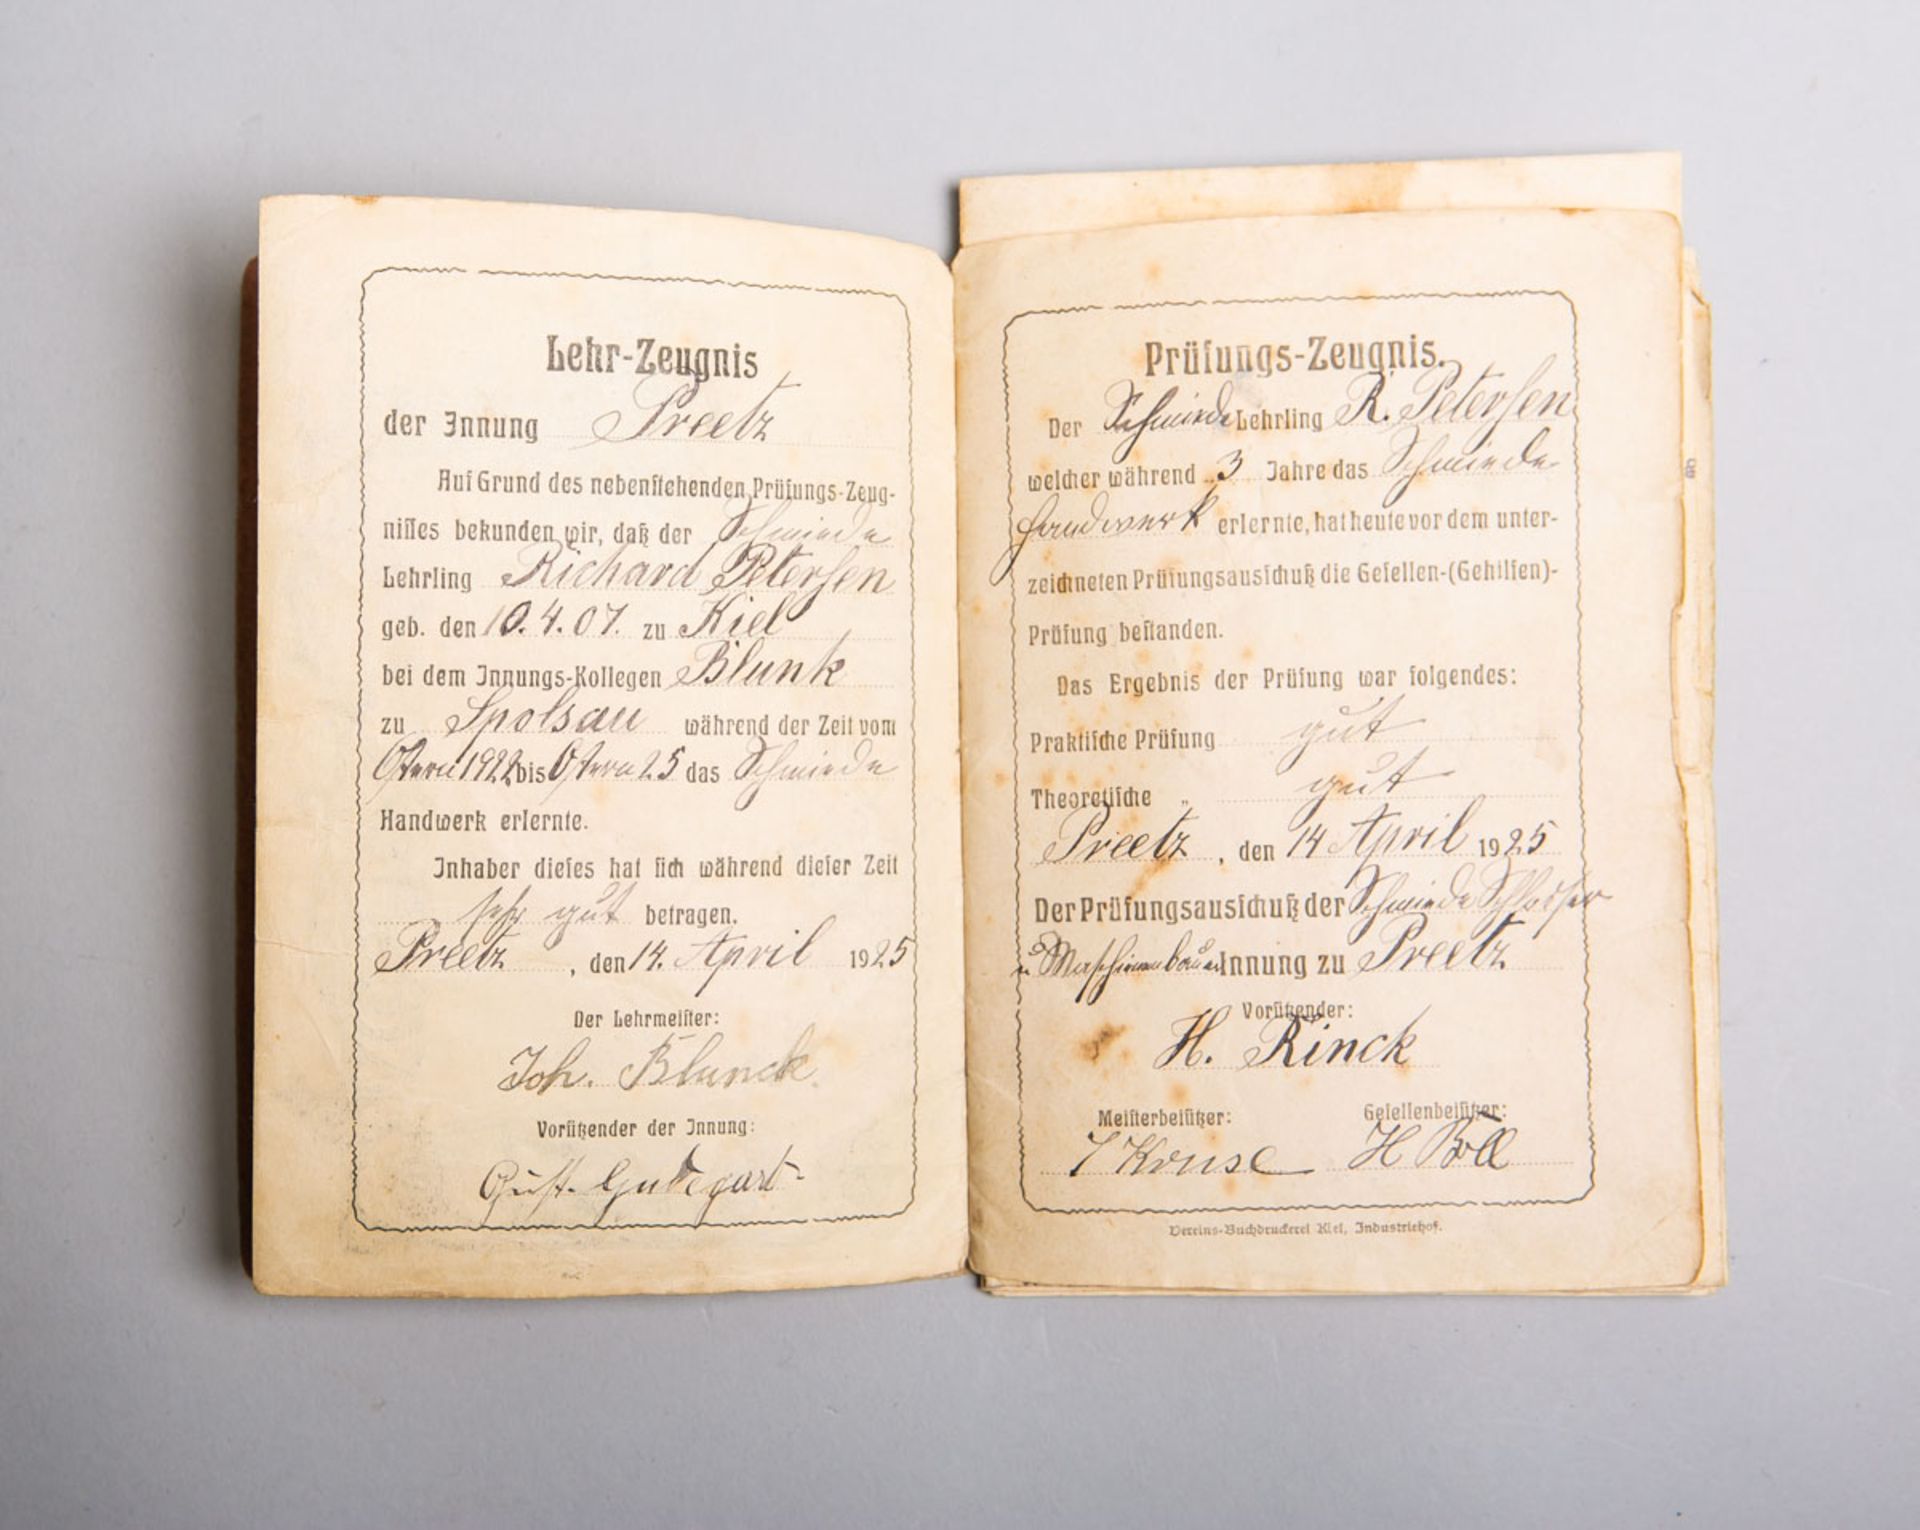 Lehr-Zeugnis
der Innung Preetz
Auf Grund des nebenstehenden Prüfungs-Zeug-
nisses bekunden wir, daß der Schmiede
Lehrling Richard Petersen
geb. den 10.4.07. zu Kiel
bei dem Innungs-Kollegen Blunk
zu Spolsau während der Zeit vom
Ostern 1922 bis Ostern 25 das Schmiede
Handwerk erlernte.
Inhaber dieses hat sich während dieser Zeit
sehr gut betragen.
Preetz, den 14. April 1925
Der Lehrmeister:
Joh. Blunck
Vorsitzender der Innung:
Gust.
Prüfungs-Zeugnis.
Der Schmiede Lehrling R. Petersen
welcher während 3 Jahre das Schmiede
handwerk erlernte, hat heute vor dem unter-
zeichneten Prüfungsausschuß die Gesellen-(Gehilfen)-
Prüfung bestanden.
Das Ergebnis der Prüfung war folgendes:
Praktische Prüfung gut
Theoretische „ gut
Preetz, den 14 April 1925
Der Prüfungsausschuß der Schmiede Schlosser
u Maschinenbauer Innung zu Preetz
Vorsitzender:
H. Rinck
Meisterbeisitzer: Gesellenbeisitzer:
J Kruse H Böll
Vereins-Buchdruckerei Kiel, Industriehof.